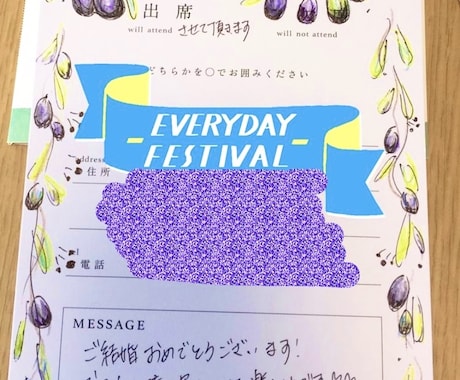 出席
will attend させて頂きます will not attend
どちらかを○でお囲みください
EVERYDAY
FESTIVAL
住所
電話
MESSAGE
ご結婚おめでとうございます!